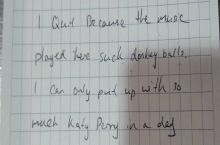 I Quit Because the music
played here such donkey balls.
I can only put up with so
much Katy Perry in a day